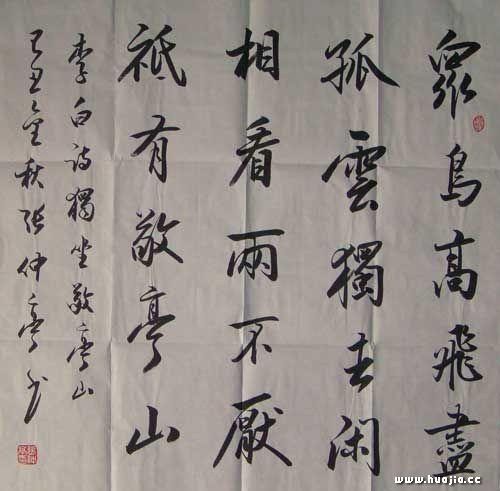 眾鳥高飛盡
孤雲獨去閑
相看兩不厭
祗有敬亭山
李白詩獨坐敬亭山
己丑金秋張仲亭書
www.huajia.cc